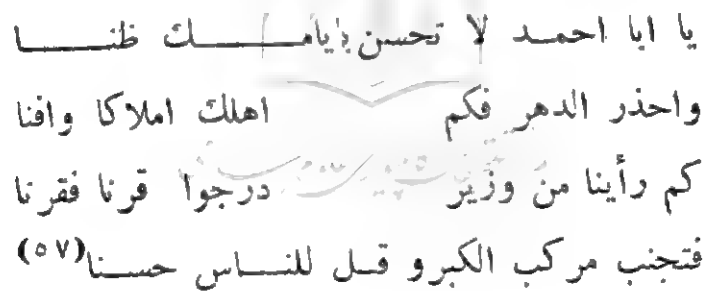 يا ابا احمد لا تحسن بأيامك ظنا
واحذر الدهر فكم اهلك املاكا وافنا
كم رأينا من وزير درجوا قرنا فقرنا
فتجنب مركب الكبرو قل للناس حسنا(٥٧)